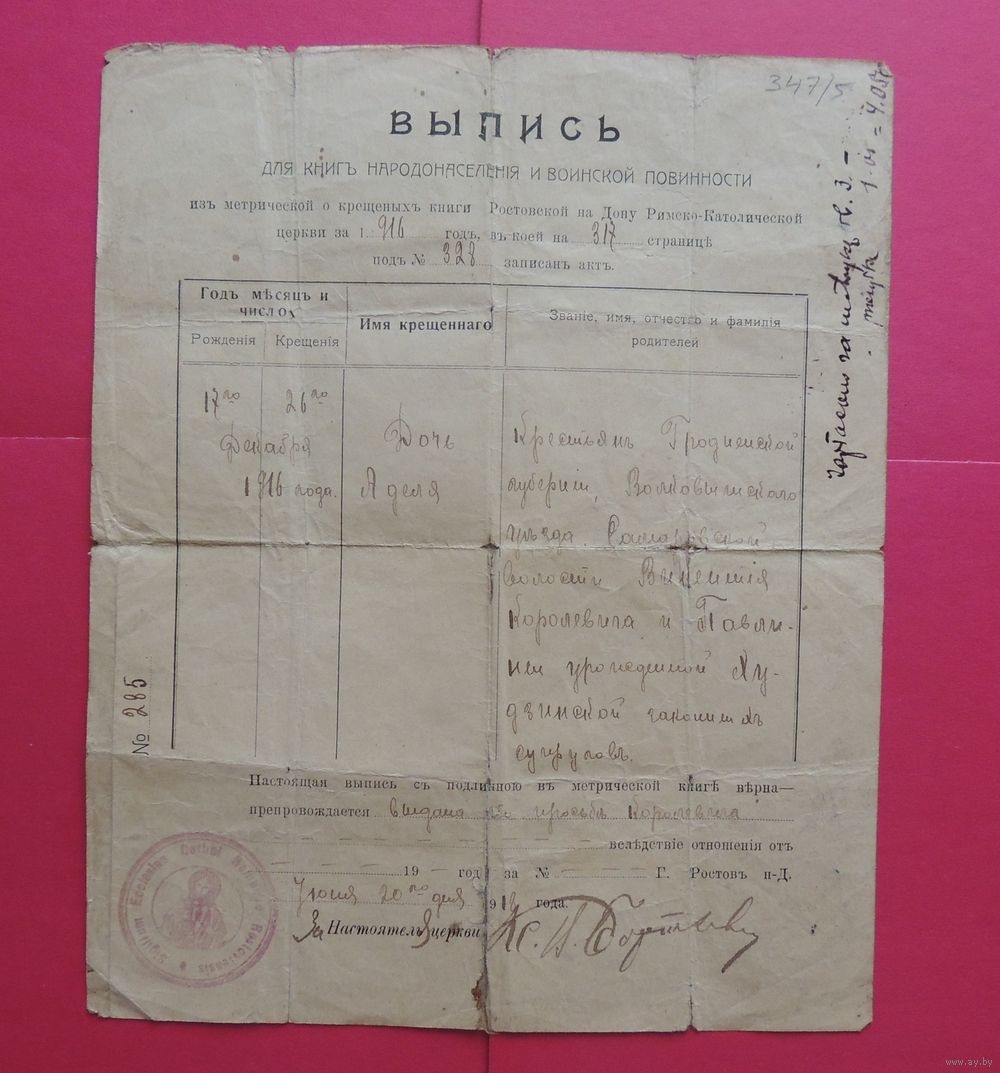 347/5
ВЫПИСЬ
ДЛЯ КНИГЪ НАРОДОНАСЕЛЕНІЯ И ВОИНСКОЙ ПОВИННОСТИ
изъ метрической о крещеныхъ книги Ростовской на Дону Римско-Католической
церкви за 1916 годъ, въ коей на 317 страницѣ
подъ № 328 записанъ актъ.
Годъ мѣсяцъ и
число
Рожденія
Крещенія
Имя крещеннаго
Званіе, имя, отчество и фамилія
родителей
17го 26го
Декабря
1916 года.
Дочь
Аделя
Крестьянъ Гродненской
губерніи, Волковыскаго
уѣзда
волости Викентія
Королевича и Павли-
ны урожденной Ху-
дзинской законныхъ
супруговъ.
№ 285
Настоящая выпись съ подлинною въ метрической книгѣ вѣрна—
препровождается выдана по просьбѣ Королевича
вслѣдствіе отношенія отъ
19 — год за № — — — Г. Ростовъ н-Д.
Іюня 20го дня 191 года.
За Настоятеля церкви Кс. П.
Sigillum Ecclesiae Cathol Rostoviensis
www.ay.by